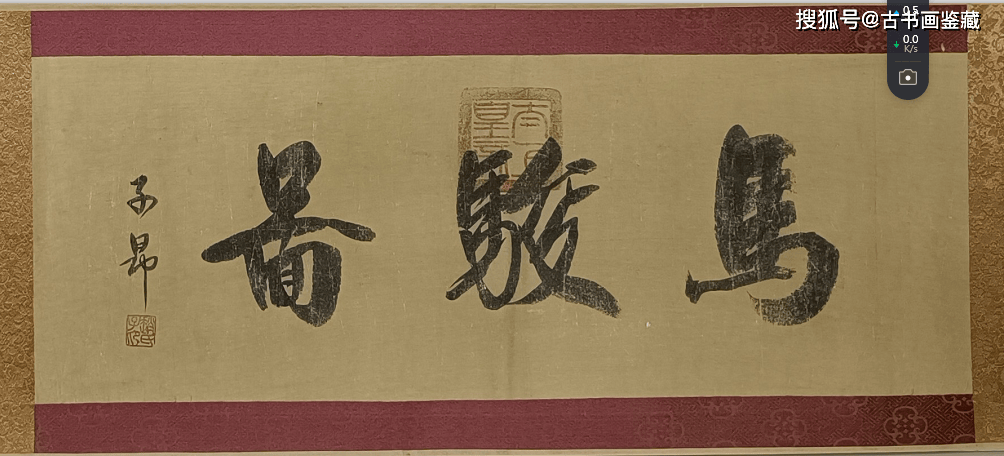 搜狐号@古书画鉴藏
0.5
0.0
K/s
馬駿圖
子昂
趙氏子昂